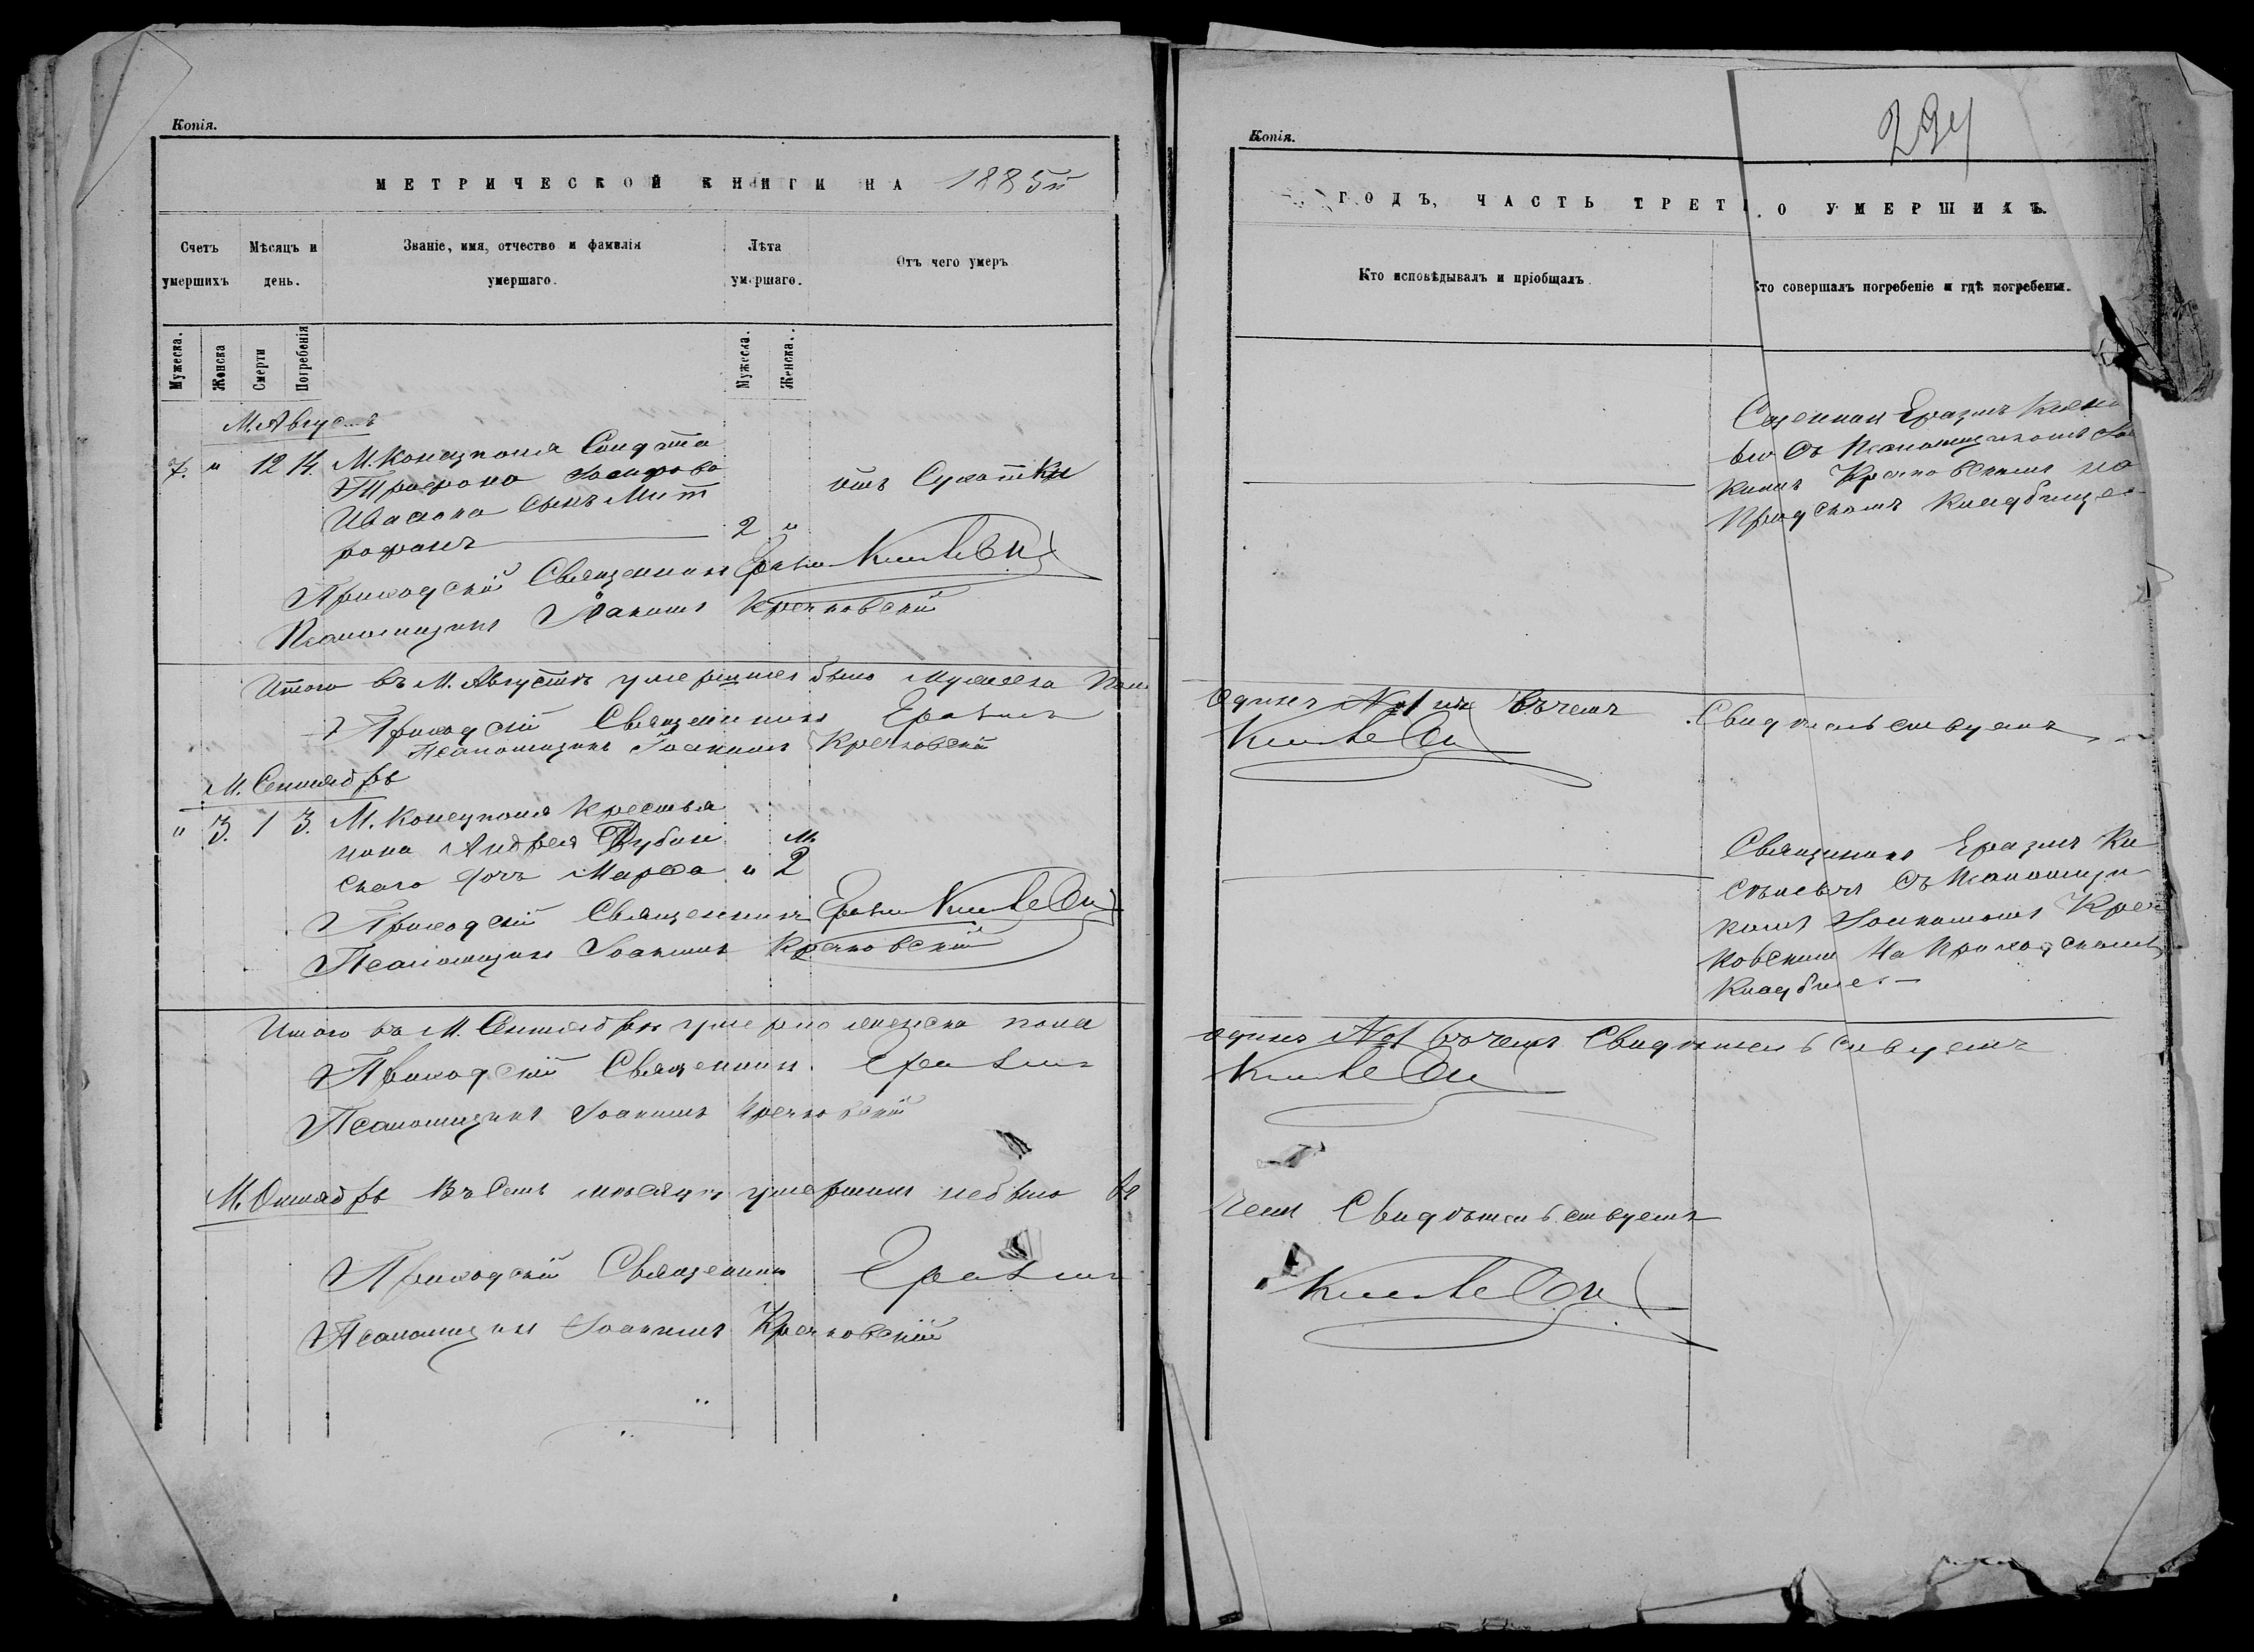 Копія.
МЕТРИЧЕСКОЙ КНИГИ НА 1885й
Счетъ умершихъ
Мѣсяцъ и день.
Званіе, имя, отчество и фамилія умершаго.
Лѣта умершаго.
Отъ чего умеръ
Мужеска.
Женска
Смерти
Погребенія
Мужеска.
Женска.
М. Августъ
7. " 12 14. М. Конецполя Солдата
Трофима Іосифова
Ивасюка сынъ Мит
рофанъ 2 "
отъ Сухотки
Приходскій Священникъ Еразмъ
Псаломщикъ Іоакимъ Крачковскій
Итого въ М. Августѣ умершихъ было мужеска пола
Приходскій Священникъ Еразмъ
Псаломщикъ Іоакимъ Крачковскій
М. Сентябрь
" 3. 1 3. М. Конецполя крестья
нина Андрея
скаго дочь Марѳа " 2 м.
Приходскій Священникъ Еразмъ
Псаломщикъ Іоакимъ Крачковскій
Итого въ М. Сентябрѣ умерло женска пола
Приходскій Священникъ Еразмъ
Псаломщикъ Іоакимъ Крачковскій
М. Октябрь Въ семъ мѣсяцѣ умершихъ небыло въ
Приходскій Священникъ Еразмъ
Псаломщикъ Іоакимъ Крачковскій
Копія.
ГОДЪ, ЧАСТЬ ТРЕТІ. О УМЕРШИХЪ.
Кто исповѣдывалъ и пріобщалъ.
Кто совершалъ погребеніе и гдѣ погребены.
Еразмъ
съ Псаломщикомъ
кимъ Крачковскимъ на
Приходскомъ кладбище
одинъ №1 въ чемъ Свидѣтельствуемъ
Священникъ Еразмъ
съ Псаломщи
комъ Іоакимомъ Крач
ковскимъ на Приходскомъ
кладбище.
одинъ №1 въ чемъ Свидѣтельствуемъ
чемъ Свидѣтельствуемъ